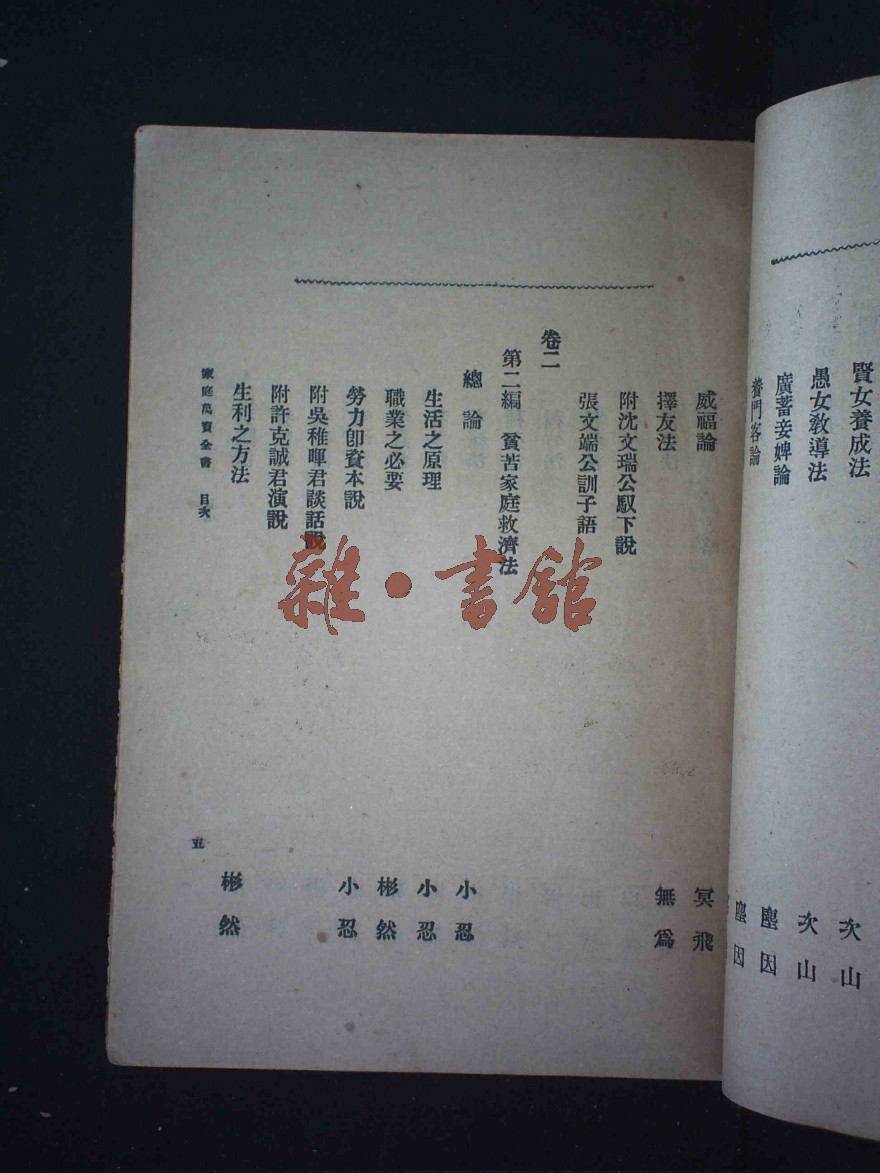 賢女養成法 次山
愚女教導法 次山
廣蓄妾婢論 塵因
養門客論 塵因
威福論 冥飛
擇友法 無為
附沈文瑞公馭下說
張文端公訓子語
卷二
第二編 貧苦家庭救濟法
總論 小忍
生活之原理 小忍
職業之必要 彬然
勞力卽資本說 小忍
附吳稚暉君談話說
附許克誠君演說
生利之方法 彬然
家庭萬寶全書 目次 五
雜·書館